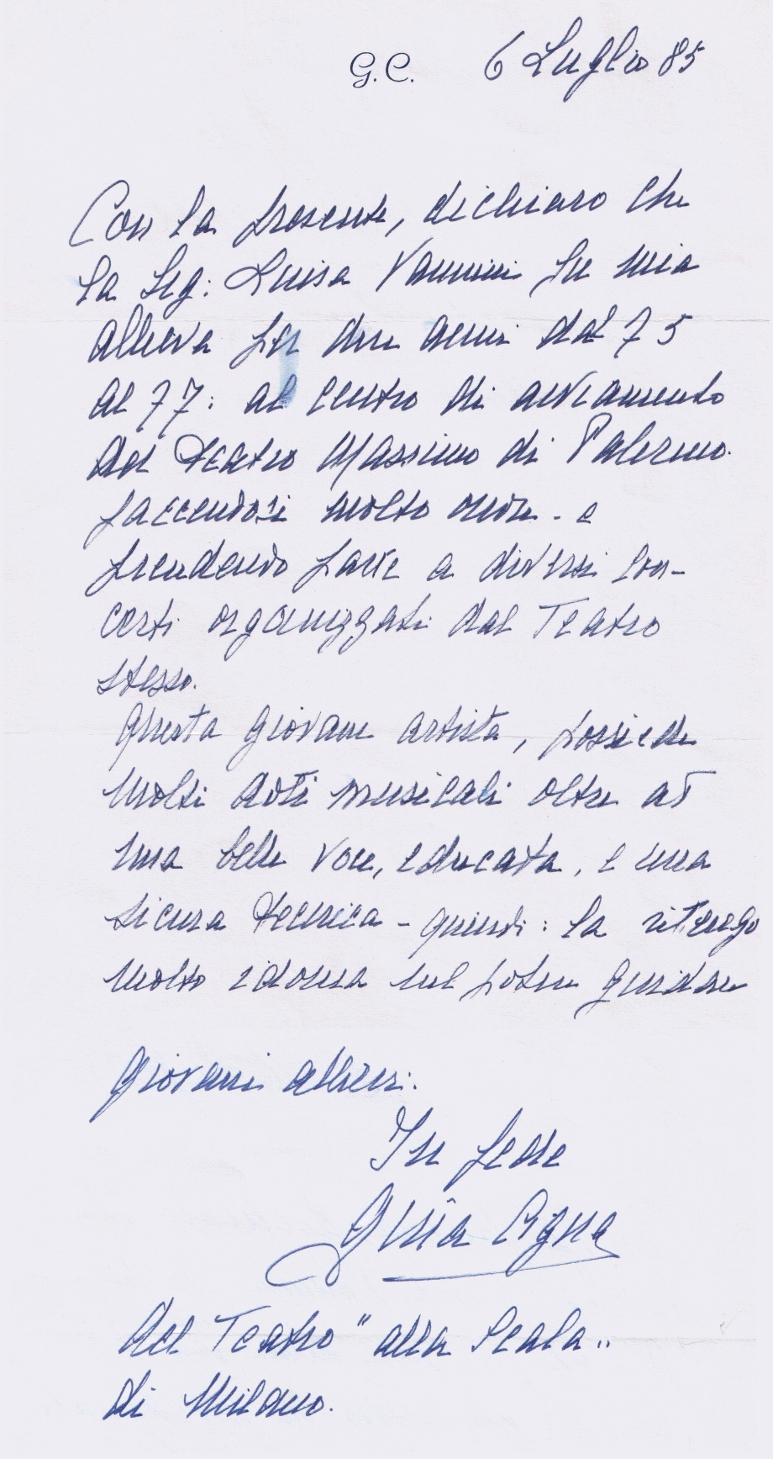 G.C. 6 Luglio 85
Con la presente, dichiaro che
la Sig: Luisa Vannini fu mia
allieva per due anni dal 75
al 77: al centro di avviamento
del Teatro Massimo di Palermo.
facendosi molto onore - e
prendendo parte a diversi con-
certi organizzati dal Teatro
stesso.
Questa giovane artista, possiede
molti doti musicali oltre at
una bella voce, educata, e una
sicura tecnica - quindi: la ritengo
molto idonea nel poter guidare
giovani allievi.
In fede
Gina Cigna
del Teatro "alla Scala"
di Milano.